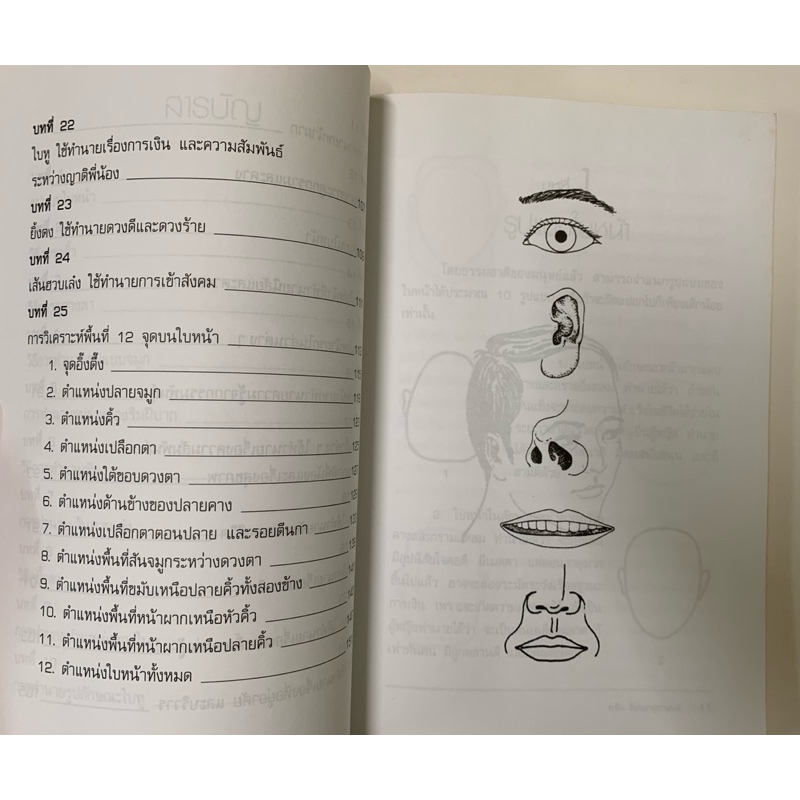 บทที่ 22
ใบหู ใช้ทำนายเรื่องการเงิน และความสัมพันธ์
ระหว่างญาติพี่น้อง 107
บทที่ 23
ยิ้งตง ใช้ทำนายดวงดีและดวงร้าย 109
บทที่ 24
เส้นฮวบเล่ง ใช้ทำนายการเข้าสังคม 111
บทที่ 25
การวิเคราะห์พื้นที่ 12 จุดบนใบหน้า 113
1. จุดอิ๊งตึ๊ง 115
2. ตำแหน่งปลายจมูก 119
3. ตำแหน่งคิ้ว 121
4. ตำแหน่งเปลือกตา
5. ตำแหน่งใต้ขอบดวงตา 127
6. ตำแหน่งด้านข้างของปลายคาง
7. ตำแหน่งเปลือกตาตอนปลาย และรอยตีนกา
8. ตำแหน่งพื้นที่สันจมูกระหว่างดวงตา
9. ตำแหน่งพื้นที่ขมับเหนือปลายคิ้วทั้งสองข้าง
10. ตำแหน่งพื้นที่หน้าผากเหนือหัวคิ้ว
11. ตำแหน่งพื้นที่หน้าผากเหนือปลายคิ้ว
12. ตำแหน่งใบหน้าทั้งหมด